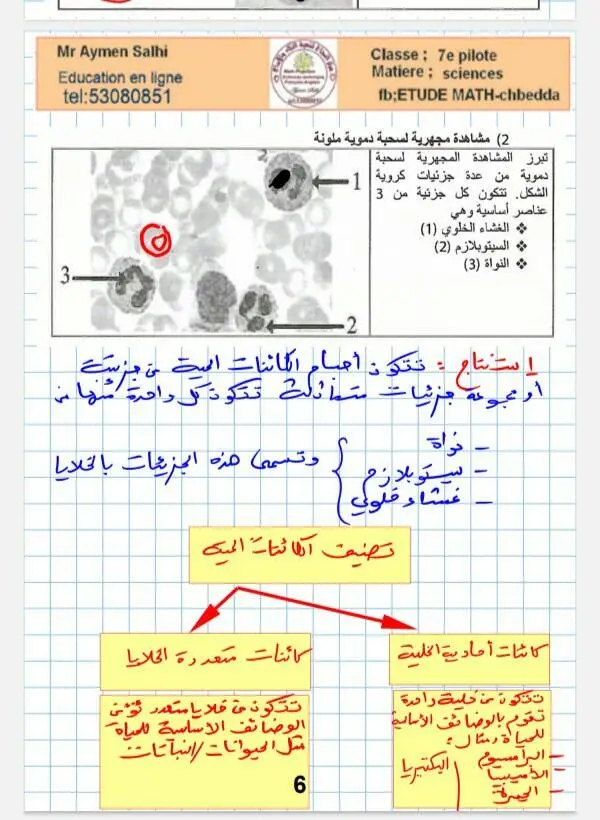 Mr Aymen Salhi
Education en ligne
tel:53080851
Classe ; 7e pilote
Matiere ; sciences
fb;ETUDE MATH-chbedda
2) مشاهدة مجهرية لسحبة دموية ملونة
تبرز المشاهدة المجهرية لسحبة
دموية من عدة جزئيات كروية
الشكل. تتكون كل جزئية من 3
عناصر أساسية وهي
❖ الغشاء الخلوي (1)
❖ السيتوبلازم (2)
❖ النواة (3)
1
3
2
إستنتاج : تتكون أجسام الكائنات الحية من جزيئة
أو مجموعة جزئيات متماثلة تتكون كل واحدة منها من
- نواة
- سيتوبلازم
- غشاء خلوي
وتسمى هذه الجزيئات بالخلايا
تصنيف الكائنات الحية
كائنات أحادية الخلية
تتكون من خلية واحدة
تقوم بالوظائف الأساسية
للحياة مثال :
- البرامسيوم
- الأميبيا
- الخميرة
البكتيريا
كائنات متعددة الخلايا
تتكون من خلايا متعدد تؤمن
الوضائف الأساسية للحياة
مثل الحيوانات/النباتات
6